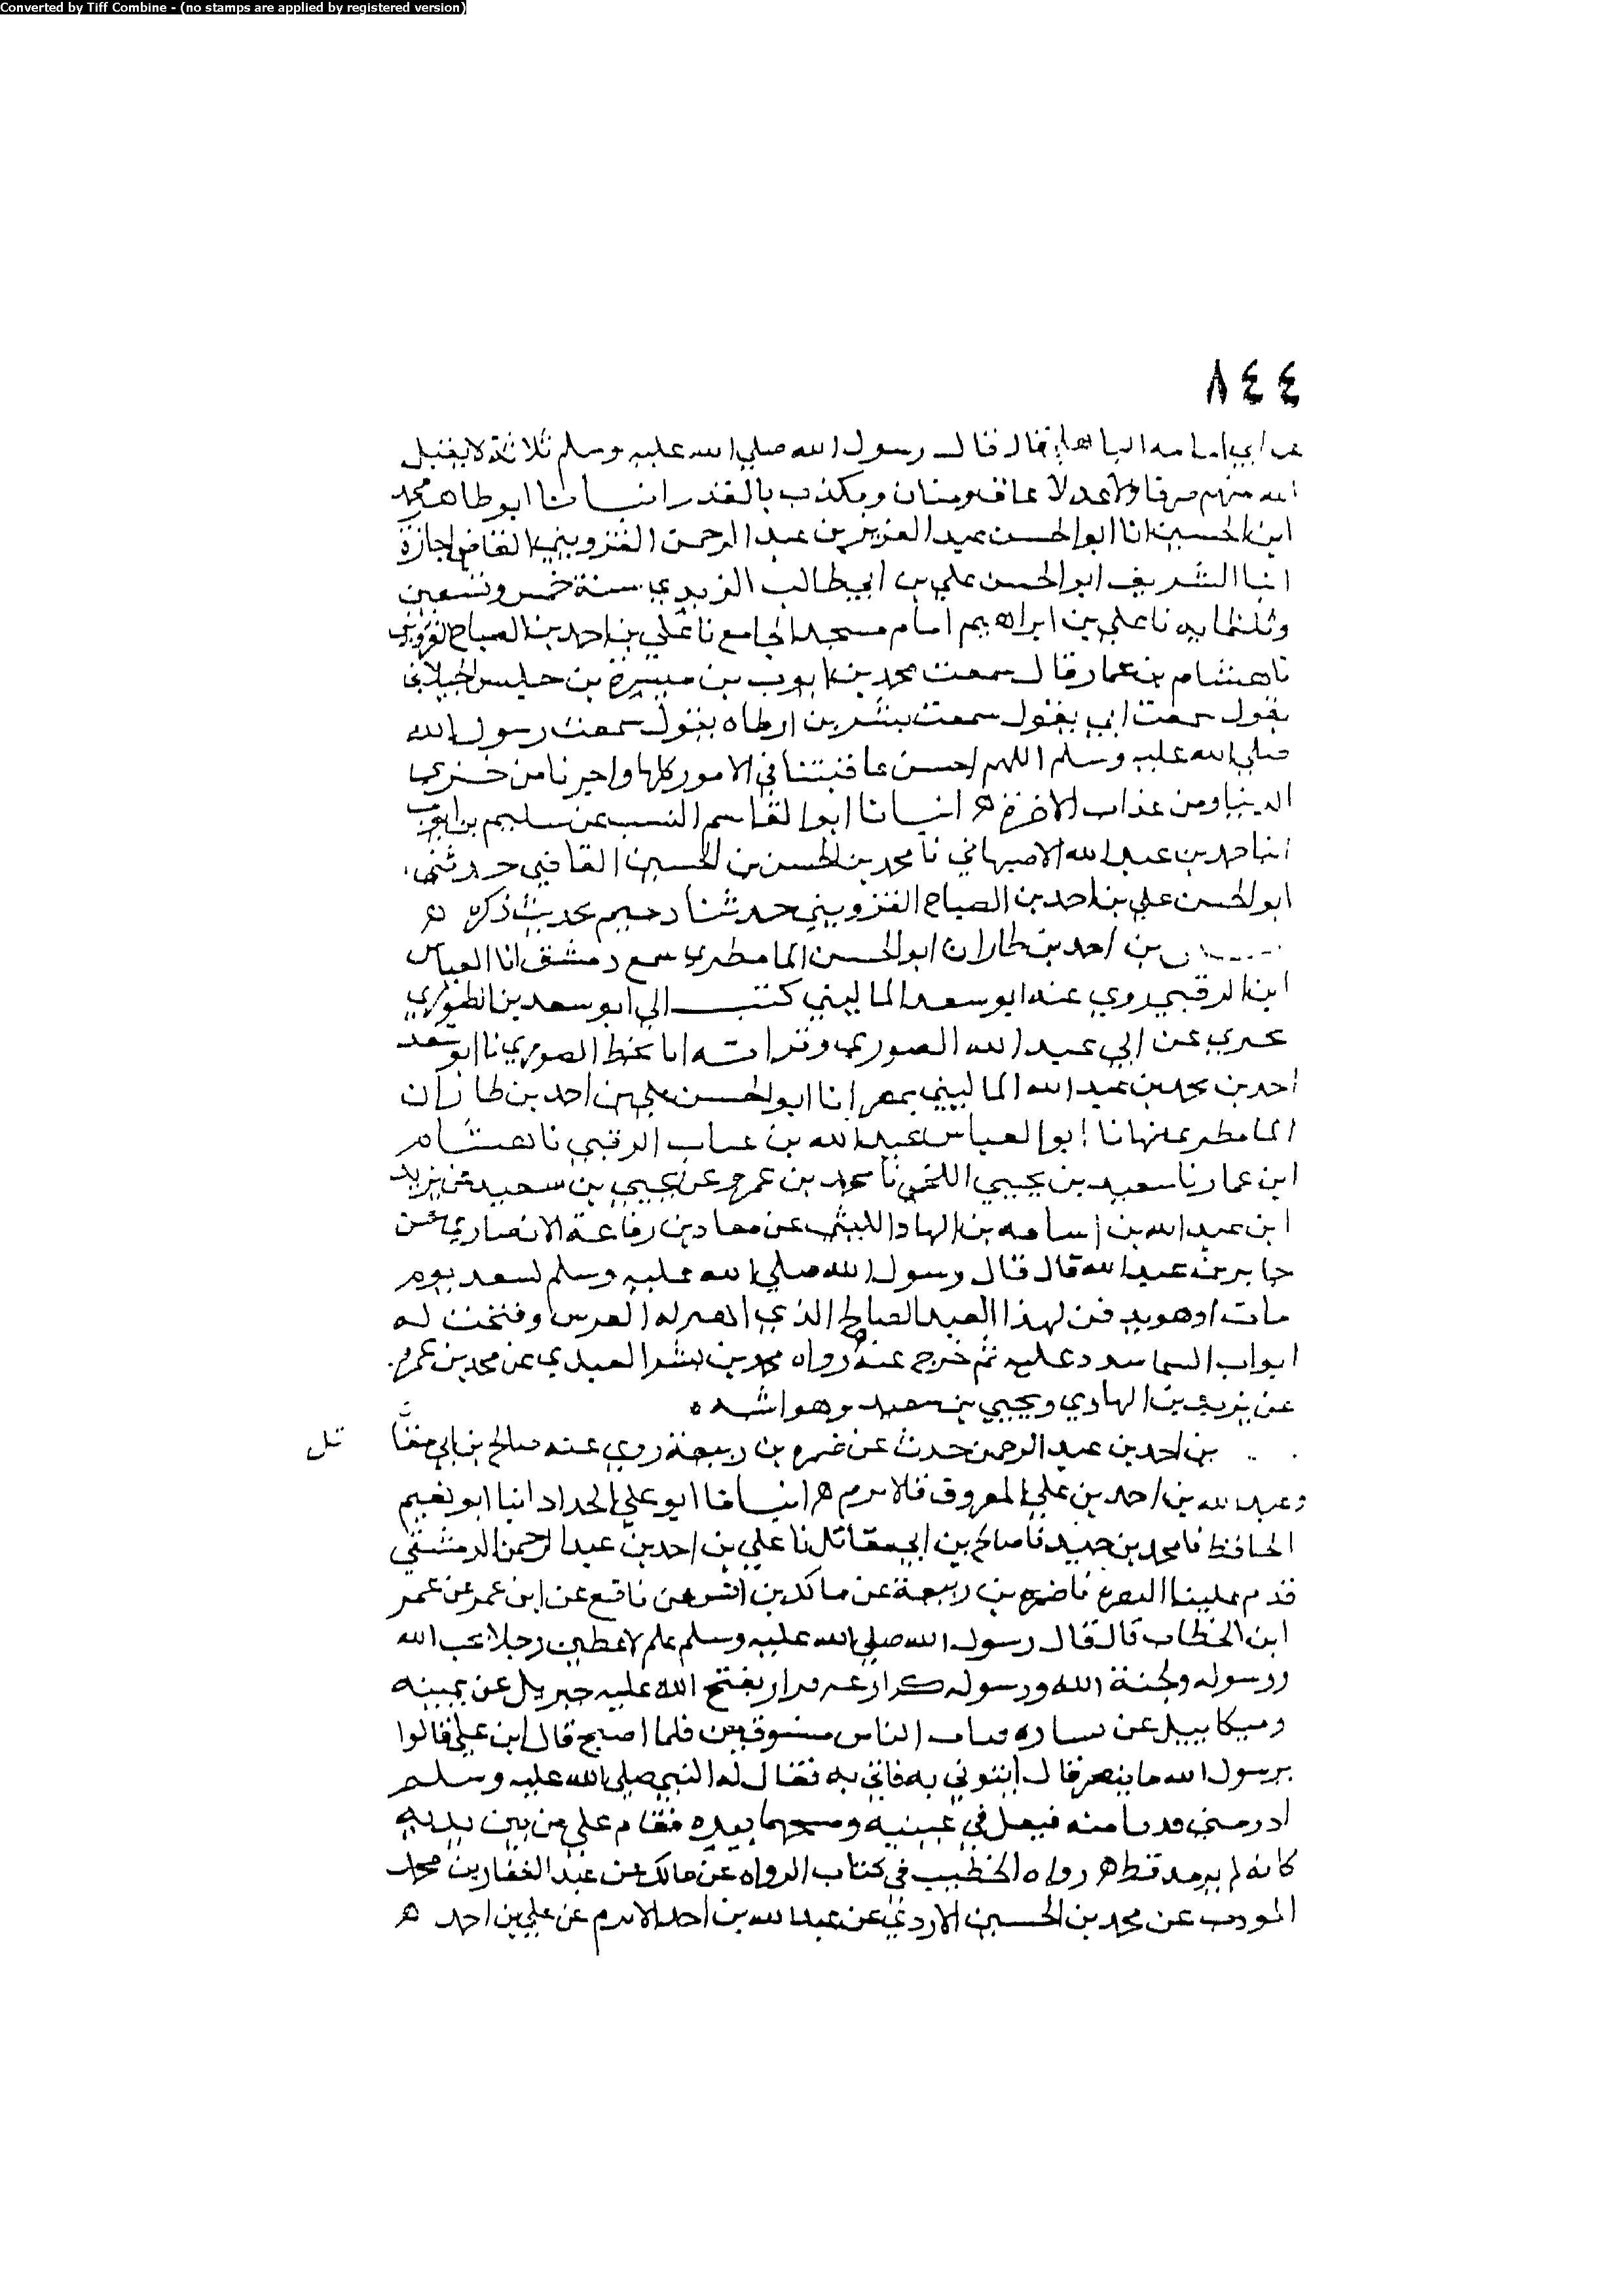 Converted by Tiff Combine - (no stamps are applied by registered version)
٨٤٤
عن ابي امامه الباهلي قال قال رسول الله صلي الله عليه وسلم ثلاثة لا يقبل
الله منهم صرفا ولا عدلا عاق ومنان ومكذب بالقدر انبانا ابو طاهر محمد
ابن الحسين انا ابو الحسن عبد العزيز بن عبد الرحمن القزويني القاضي اجازة
انا الشريف ابو الحسن علي بن ابي طالب الزيدي سنة خمس وتسعين
وثلثمايه نا علي بن ابراهيم امام مسجد الجامع نا علي بن احمد بن الصباح القزويني
نا هشام بن عمار قال سمعت محمد بن ايوب بن ميسرة بن حليس الجبلاني
يقول سمعت ابي يقول سمعت بشر بن ارطاه يقول سمعت رسول الله
صلي الله عليه وسلم اللهم احسن عاقبتنا في الامور كلها واجرنا من خزي
الدنيا ومن عذاب الاخرة ه انبانا ابو القاسم النسب عن سليم بن ايوب
انبا حمد بن عبد الله الاصبهاني نا محمد بن الحسن بن الحسين القاضي حدثني
ابو الحسن علي بن احمد بن الصباح القزويني حدثنا دحيم بحديث ذكره ه
بن احمد بن طاران ابو الحسن المامطري سمع دمشق انا العباس
ابن الرقبي روي عنه ابو سعد الماليني كتب الي ابو سعد بن الطيوري
يخبري عن ابي عبد الله الصوري وقراته انا بخط الصوري نا ابو سعد
احمد بن محمد بن عبد الله الماليني بمصر انا ابو الحسن علي بن احمد بن طازان
المامطري بها نا ابو العباس عبد الله بن عتاب الرقبي نا هشام
ابن عمار نا سعيد بن يحيي اللخمي نا محمد بن عمرو عن يحيي بن سعيد عن يزيد
ابن عبد الله بن اسامه بن الهاد الليثي عن معاد بن رفاعة الانصاري عن
جابر بن عبد الله قال قال رسول الله صلي الله عليه وسلم لسعد يوم
مات اوهو يدفن لهذا العبد الصالح الذي اهتز له العرش وفتحت له
ابواب السما سدد عليه ثم خرج عنه رواه محمد بن بشر العبدي عن محمد بن عمرو
عن يزيد بن الهادي ويحيي بن سعيد وهو اشده
بن احمد بن عبد الرحمن حدث عن ضمره بن ربيعة روي عنه صالح بن ابي مقا تل
وعبد الله بن احمد بن علي المعروف فلامرم ه انبانا ابو علي الحداد انبا ابو نعيم
الحافظ نا محمد بن حميد نا صالح بن ابي مقاتل نا علي بن احمد بن عبد الرحمن الدمشقي
قدم علينا البصرة نا ضمرة بن ربيعة عن مالك بن انس عن نافع عن ابن عمر عن عمر
ابن الخطاب قال قال رسول الله صلي الله عليه وسلم علم لاعطين رجلا يحب الله
ورسوله ولجنة الله ورسوله كرار غير فرار يفتح الله عليه جبريل عن يمينه
وميكاييل عن يساره فبات الناس متشوقين فلما اصبح قال اين علي قالوا
يرسول الله ما يبصر قال ايتوني به فاتي به فقال له النبي صلي الله عليه وسلم
ادن مني فدنا منه فتفل في عينيه ومسحهما بيده فقام علي من بين يديه
كانه لم يرمد قط ه رواه الخطيب في كتاب الرواه عن مالك عن عبد الغفار بن محمد
المودب عن محمد بن الحسين الازدي عن عبد الله بن احمد الامرم عن علي بن احمد ه